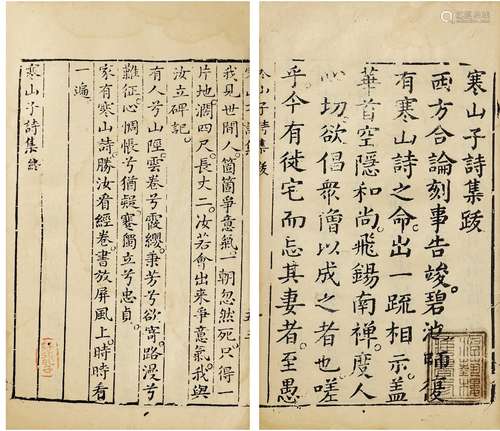 我見世間人箇箇爭意氣一朝忽然死只得一
片地濶四尺長丈二汝若會出來爭意氣我與
汝立碑記
有人兮山陘雲卷兮霞纓秉芳兮欲寄路漫兮
難征心惆悵兮猶疑蹇獨立兮忠貞
家有寒山詩勝汝看經卷書放屏風上時時看
一遍
寒山子詩集終
寒山子詩集跋
西方合論刻事告竣碧波師復
有寒山詩之命出一疏相示蓋
華首空隱和尚飛錫南禪度人
心切欲倡衆僧以成之者也嗟
乎今有徙宅而忘其妻者至愚